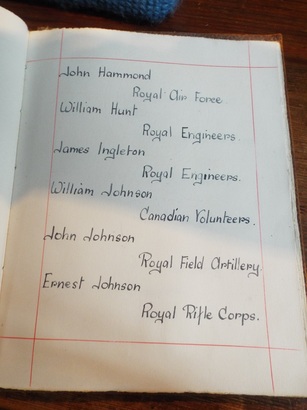 John Hammond
Royal Air Force
William Hunt
Royal Engineers.
James Ingleton
Royal Engineers.
William Johnson
Canadian Volunteers.
John Johnson
Royal Field Artillery.
Ernest Johnson
Royal Rifle Corps.